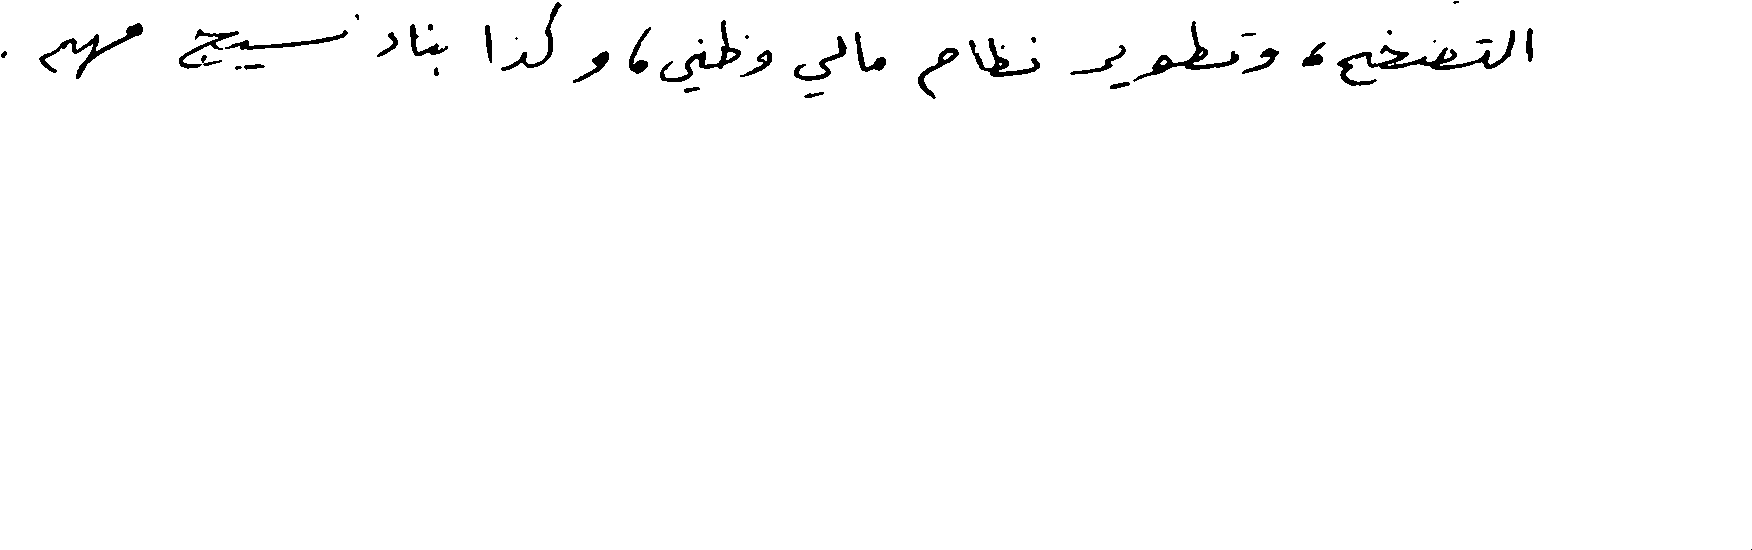 التضخم، وتطوير نظام مالي وطني، و كذا بناء نسيج مهم .